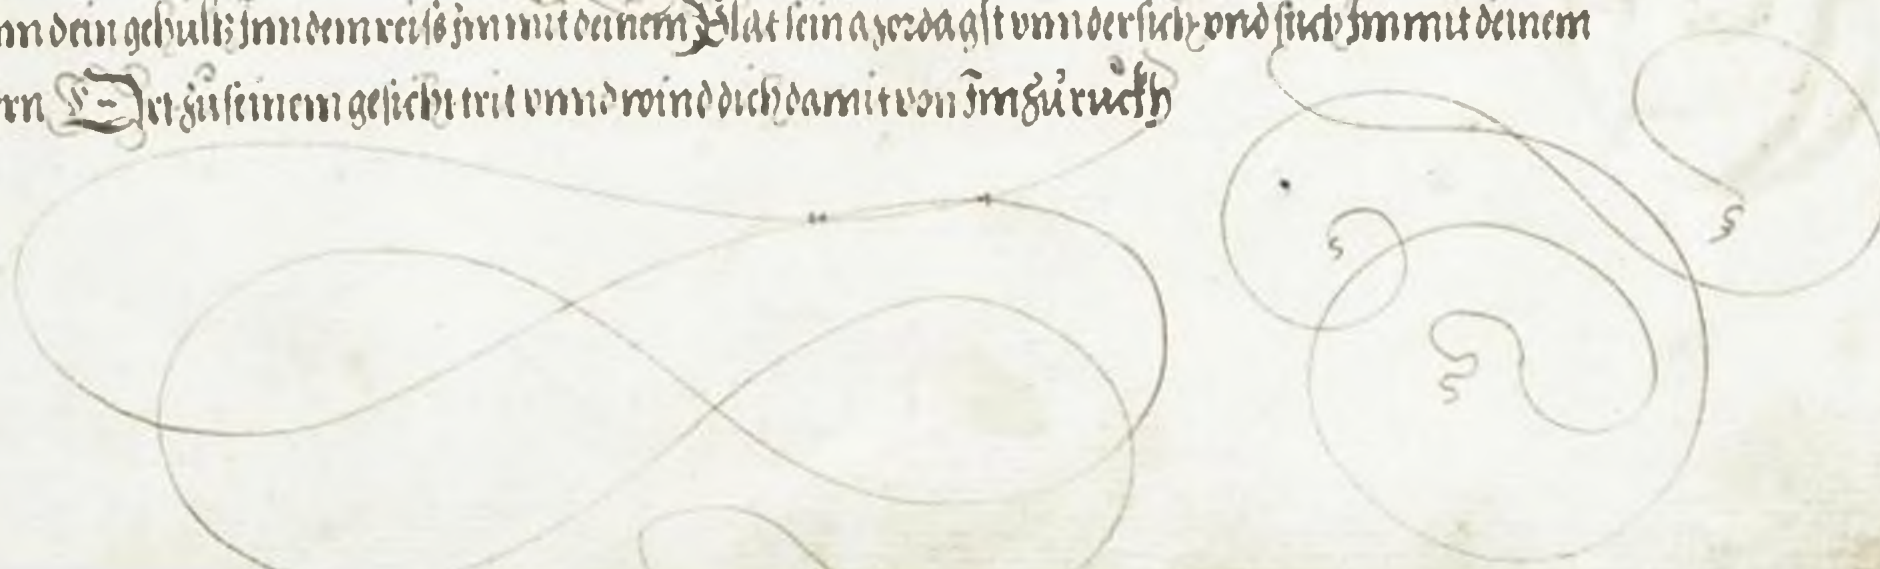 dein gehultz Inn dem reiss jm mit deinem Blat sein axt vnndersich vnnd stich Im mit deinem
Ort zů seinem gesicht trit vnnd wind dich damit von Im zů ruckh